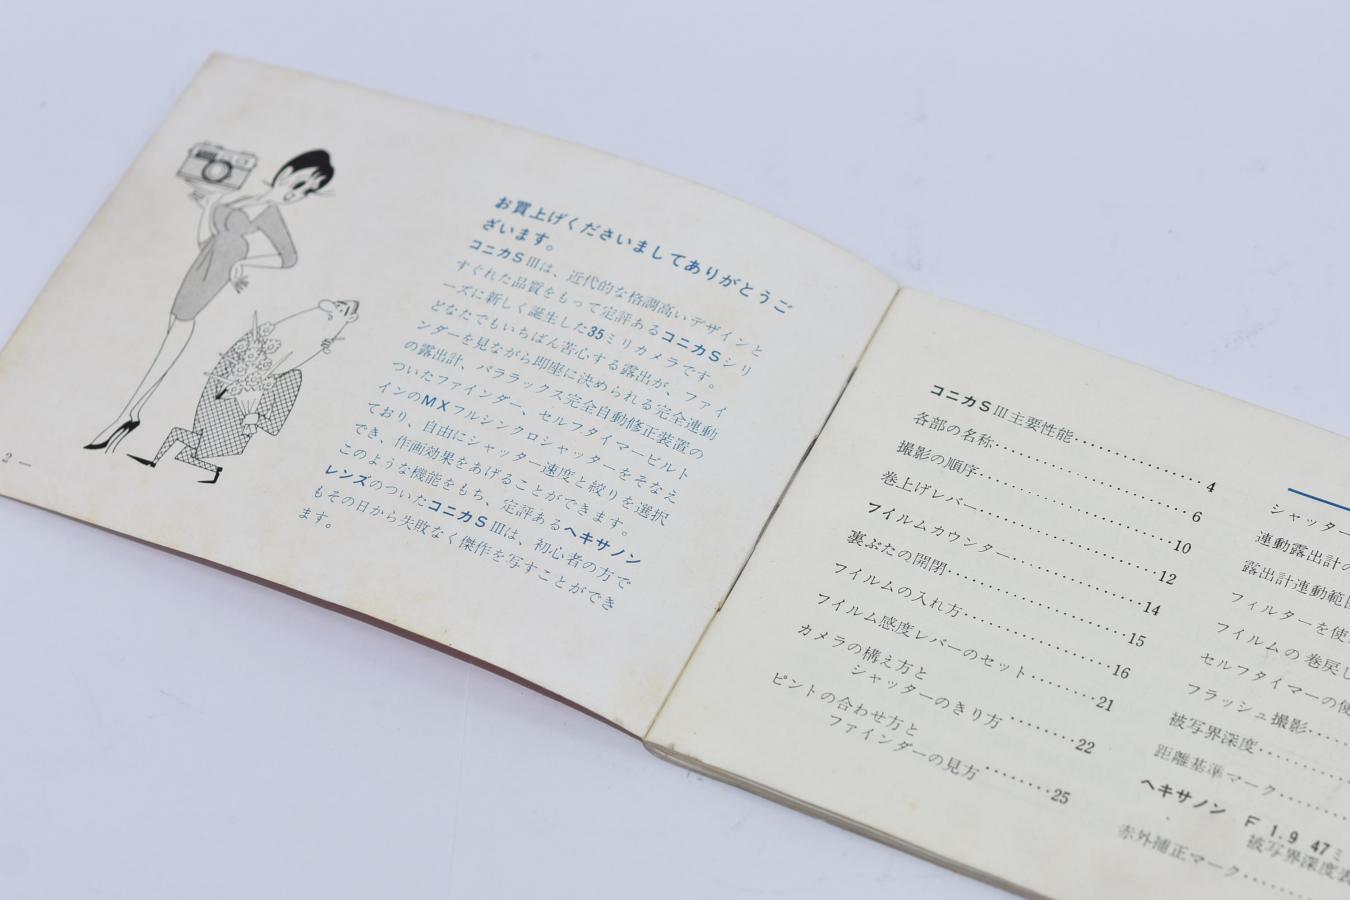 お買上げくださいましてありがとうご
ざいます。
コニカSⅢは、近代的な格調高いデザインと
すぐれた品質をもって定評あるコニカSシリ
ーズに新しく誕生した35ミリカメラです。
どなたでもいちばん苦心する露出が、ファイ
ンダーを見ながら即座に決められる完全連動
の露出計、パララックス完全自動修正装置の
ついたファインダー、セルフタイマービルト
インのMXフルシンクロシャッターをそなえ
ており、自由にシャッター速度と絞りを選択
でき、作画効果をあげることができます。
このような機能をもち、定評あるヘキサノン
レンズのついたコニカSⅢは、初心者の方で
もその日から失敗なく傑作を写すことができ
ます。
2 —
コニカSⅢ主要性能……………………4
各部の名称……………………6
撮影の順序……………………10
巻上げレバー……………………12
フイルムカウンター……………………14
裏ぶたの開閉……………………15
フイルムの入れ方……………………16
フイルム感度レバーのセット………21
カメラの構え方と
シャッターのきり方………22
ピントの合わせ方と
ファインダーの見方………25
シャッター
連動露出計の
露出計連動範囲
フィルターを使
フイルムの巻戻し
セルフタイマーの使
フラッシュ撮影……
被写界深度……
距離基準マーク……
ヘキサノン F 1.9 47ミ
被写界深度表
赤外補正マーク……